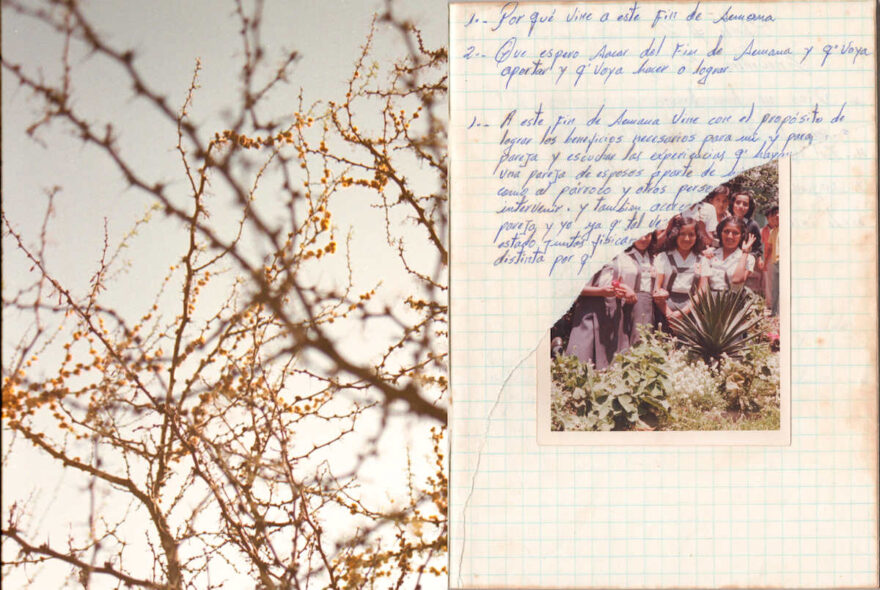 1.- Por qué vine a este fin de semana
2.- Que espero sacar del fin de semana y q' voy a
aportar y q' voy a hacer o lograr.
1.- A este fin de semana vine con el propósito de
lograr los beneficios necesarios para mi y para
pareja y escuchar las experiencias q' hayan
una pareja de esposos aparte de
como al párroco y otros perso
intervenir. y tambien acerca
pareja y yo ya q' tal ve
estado juntos física
distinta por q'